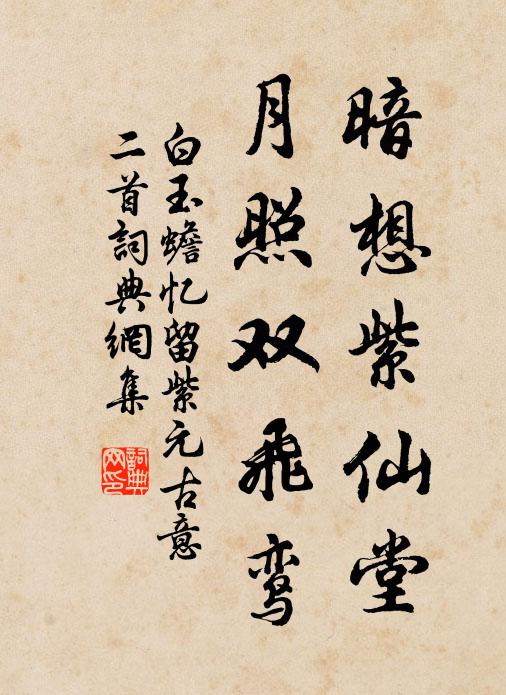 暗想紫仙堂
月照双飞鸾
白玉蟾忆留紫元古意
二首词典網集
詞典
网印